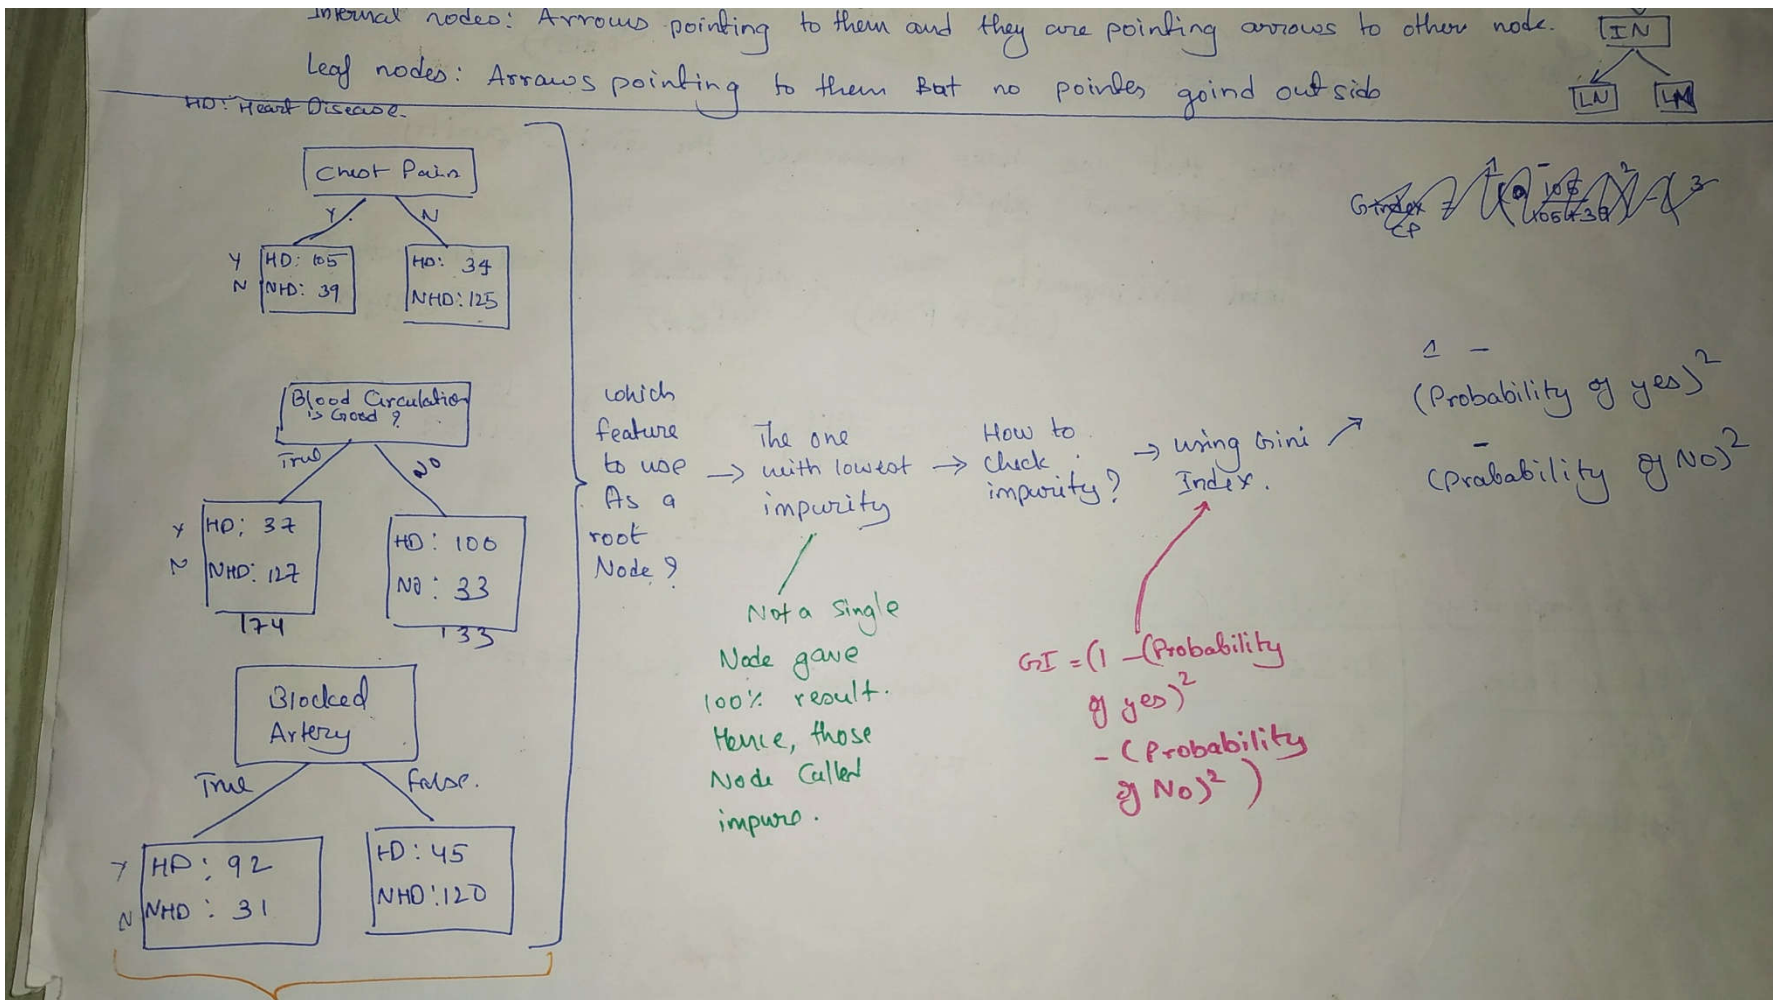 Internal nodes: Arrows pointing to them and they are pointing arrows to other node.
IN
Leaf nodes: Arrows pointing to them But no pointer goind out side
LN LN
HD: Heart Disease.
Chest Pain
Y. N
Y HD: 105
N NHD: 39
HD: 34
NHD: 125
Blood Circulation
is Good?
True NO
Y HD: 37
N NHD: 127
174
HD: 100
NO: 33
133
Blocked
Artery
True False.
Y HD: 92
N NHD: 31
HD: 45
NHD: 120
which
feature
to use
As a
root
Node?
→ The one
with lowest
impurity
→ How to
check
impurity?
→ using Gini
Index.
1 -
(Probability of yes)²
-
(Prabability of NO)²
Not a single
Node gave
100% result.
Hence, those
Node Called
impure.
GI = (1 - (Probability
of yes)²
- (Probability
of No)²)